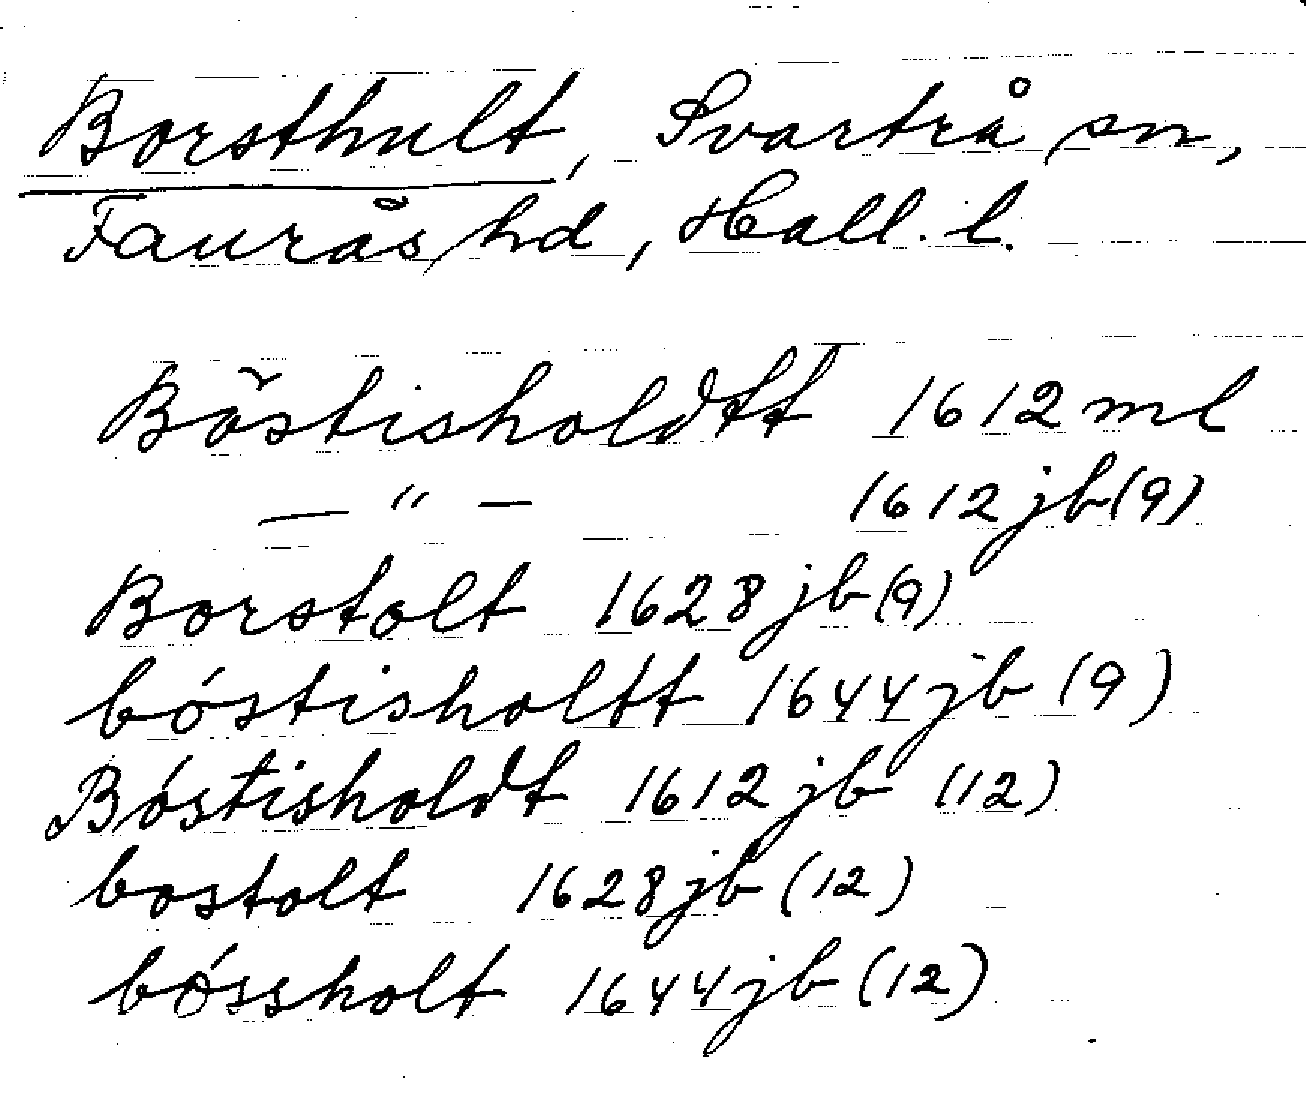 Borsthult, Svartrå sn,
Faurås hd, Hall. l.
Bŏstisholdtt 1612 ml
— " — 1612 jb (9)
Borstolt 1628 jb (9)
bóstisholtt 1644 jb (9)
Bóstisholdt 1612 jb (12)
bostolt 1628 jb (12)
bóssholt 1644 jb (12)